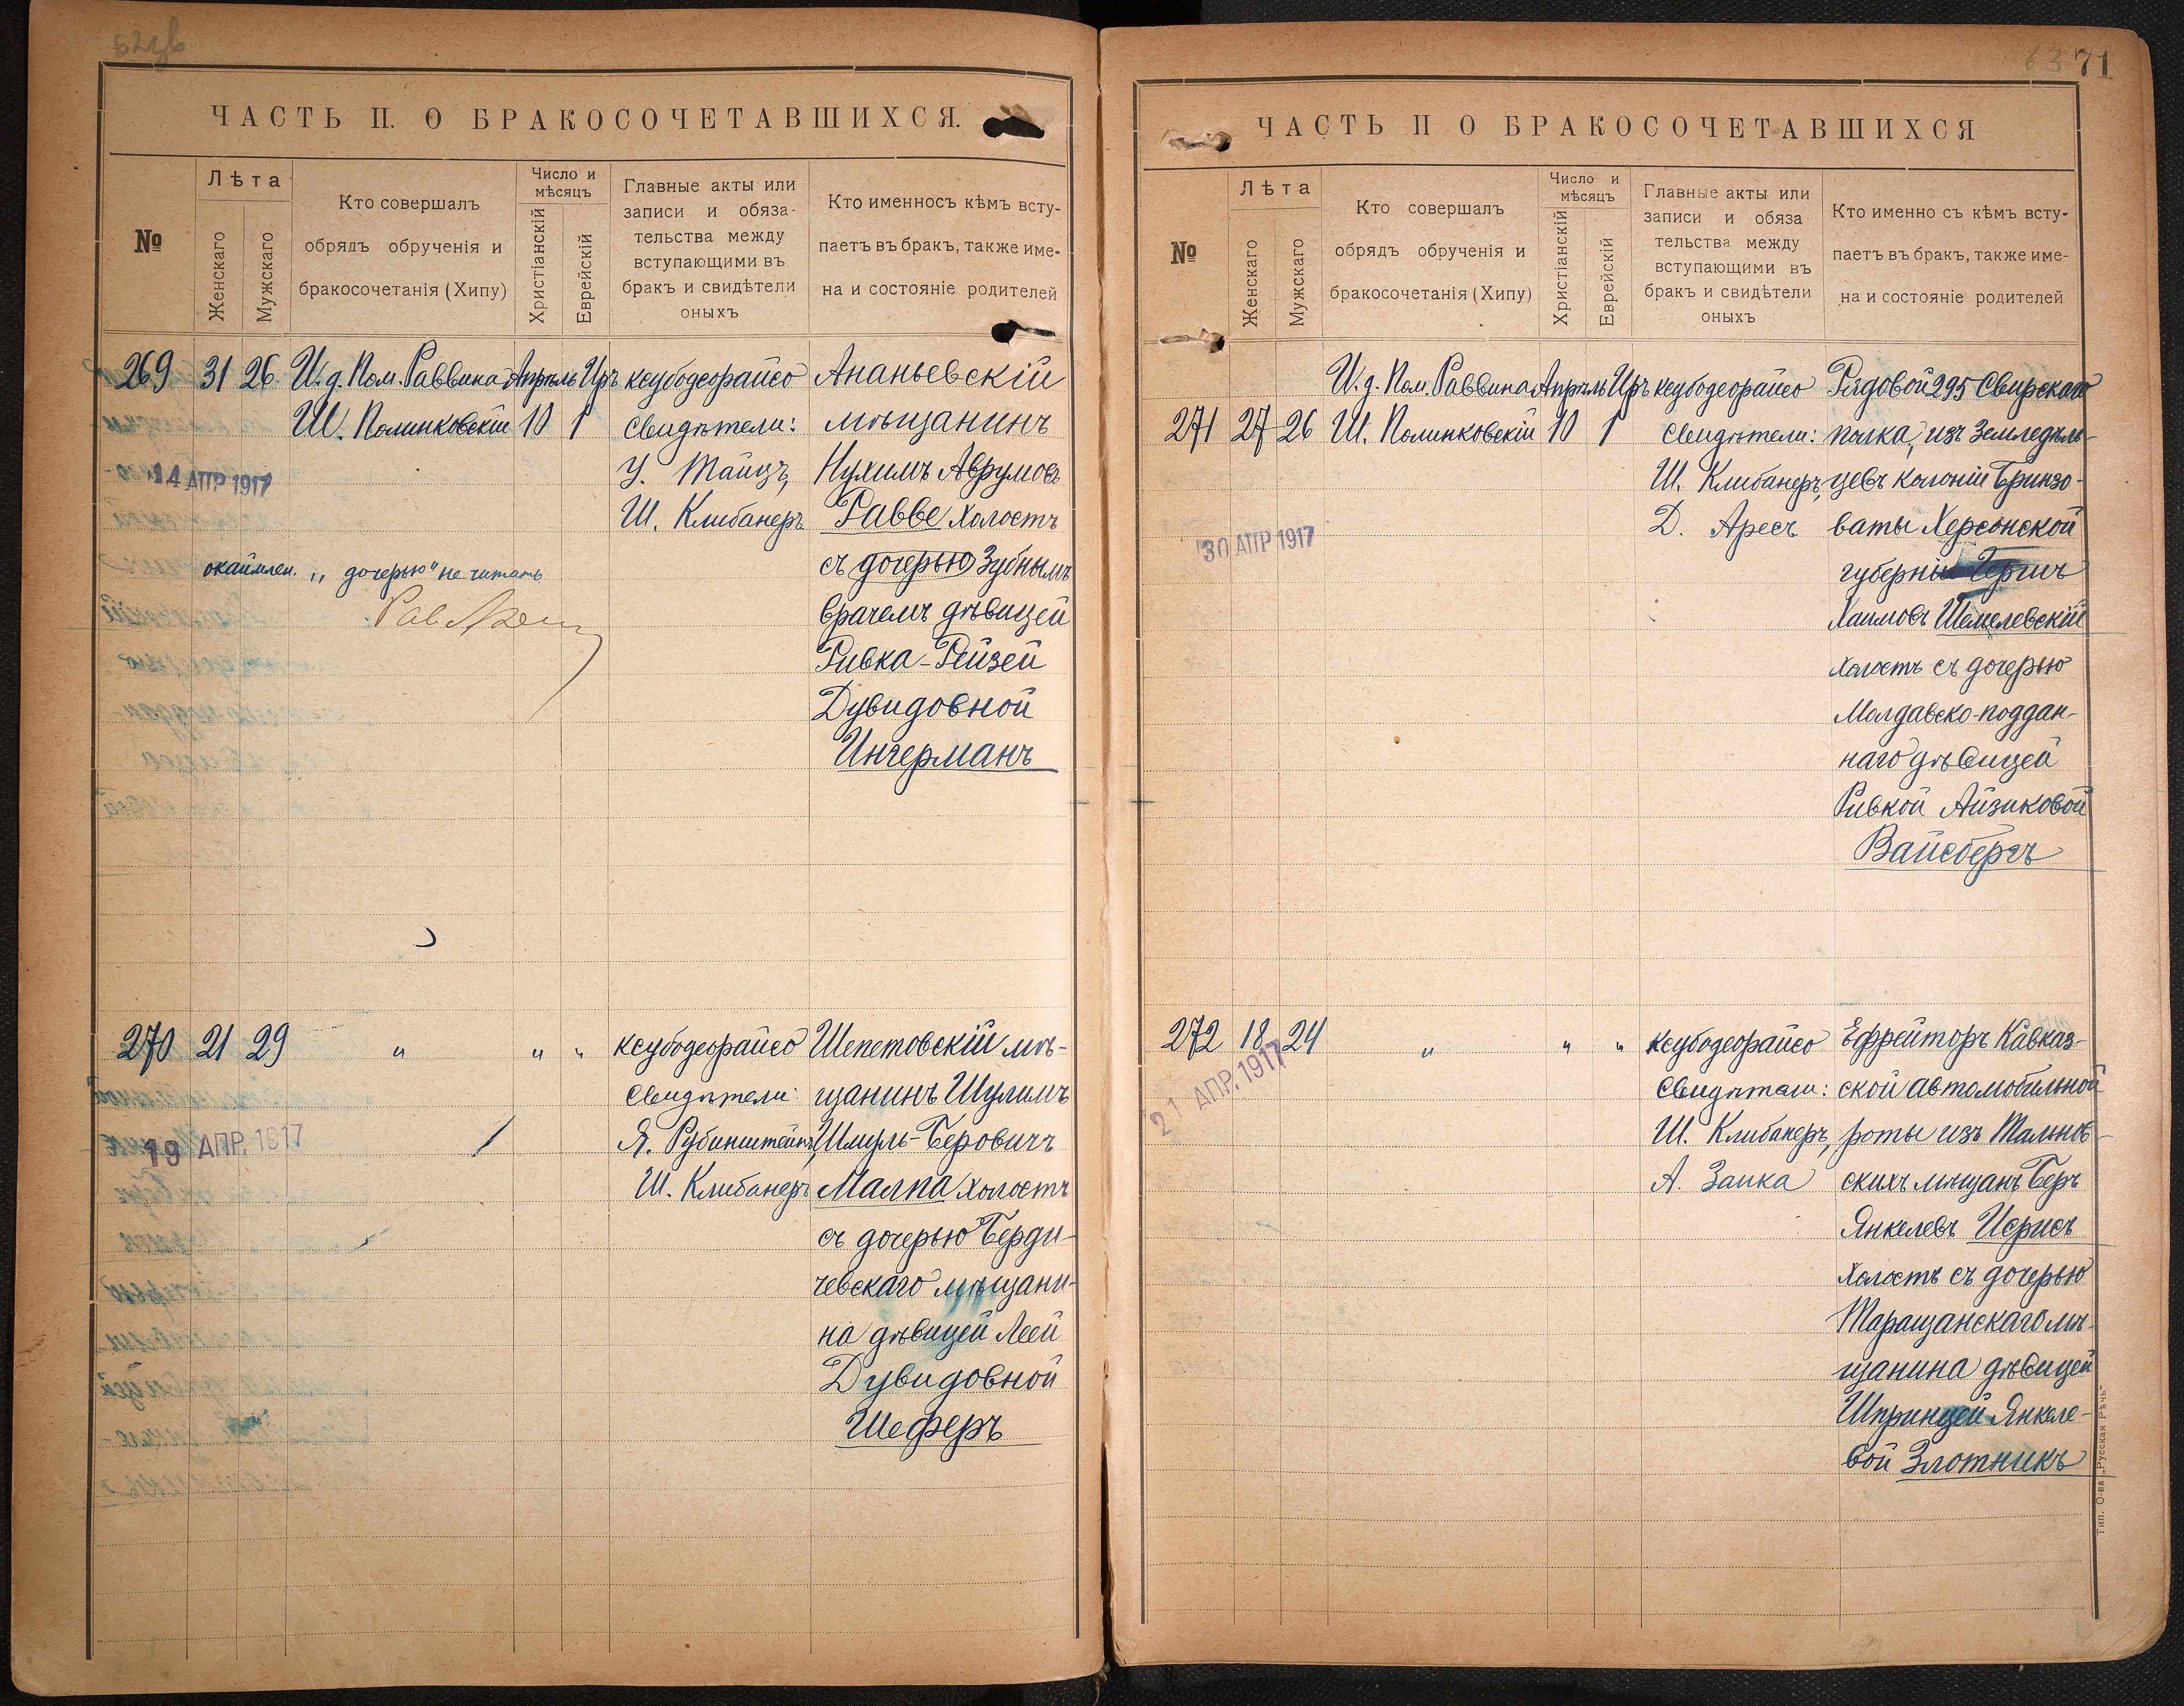 ЧАСТЬ II. О БРАКОСОЧЕТАВШИХСЯ.
№
Лѣта
Женскаго
Мужскаго
Кто совершалъ
обрядъ обрученія и
бракосочетанія (Хипу)
Число и
мѣсяцъ
Христіанскій
Еврейскій
Главные акты или
записи и обяза-
тельства между
вступающими въ
бракъ и свидѣтели
оныхъ
Кто именносъ кѣмъ всту-
паетъ въ бракъ, также име-
на и состояніе родителей
269 31 26
И. д. Пом. Раввина
Ш. Полинковскій
Апрѣль
10
Иръ
1
ксубодеорайсо
Свидѣтели:
У. Тайцъ,
Ш. Клибанеръ
Ананьевскій
мѣщанинъ
Нухимъ Аврумовъ
Равве холостъ
съ дочерью Зубнымъ
врачемъ дѣвицей
Ривка-Рейзей
Дувидовной
Ингерманъ
14 АПР 1917
окаймлен. „дочерью" не читать
270 21 29
" " "
ксубодеорайсо
Свидѣтели:
Я. Рубинштейнъ,
Ш. Клибанеръ
Шепетовскій мѣ-
щанинъ Шулимъ
Шмуль-Беровичъ
Малпа холостъ
съ дочерью Берди-
чевскаго мѣщани-
на дѣвицей Леей
Дувидовной
Шеферъ
19 АПР. 1917
71
ЧАСТЬ II О БРАКОСОЧЕТАВШИХСЯ
№
Лѣта
Женскаго
Мужскаго
Кто совершалъ
обрядъ обрученія и
бракосочетанія (Хипу)
Число и
мѣсяцъ
Христіанскій
Еврейскій
Главные акты или
записи и обяза
тельства между
вступающими въ
бракъ и свидѣтели
оныхъ
Кто именно съ кѣмъ всту-
паетъ въ бракъ, также име-
на и состояніе родителей
271 27 26
И. д. Пом. Раввина
Ш. Полинковскій
Апрѣль
10
Иръ
1
ксубодеорайсо
Свидѣтели:
Ш. Клибанеръ,
Д. Аресъ
Рядовой 295 Свирскаго
полка, изъ земледѣль-
цевъ колоніи Бринзо-
ваты Херсонской
губерніи
Хаимовъ Шемелевскій
холостъ съ дочерью
Молдавско-поддан-
наго дѣвицей
Ривкой Айзиковой
Вайсбергъ
30 АПР 1917
272 18 24
" " "
ксубодеорайсо
Свидѣтели:
Ш. Клибанеръ,
А. Заика
Ефрейторъ Кавказ-
ской автомобильной
роты изъ Тальнов-
скихъ мѣщанъ Беръ
Янкелевъ Исрисъ
холостъ съ дочерью
Таращанскаго мѣ-
щанина дѣвицей
Шпринцей Янкеле-
вой Злотникъ
21 АПР. 1917
Тип. О-ва „Русская Рѣчь"